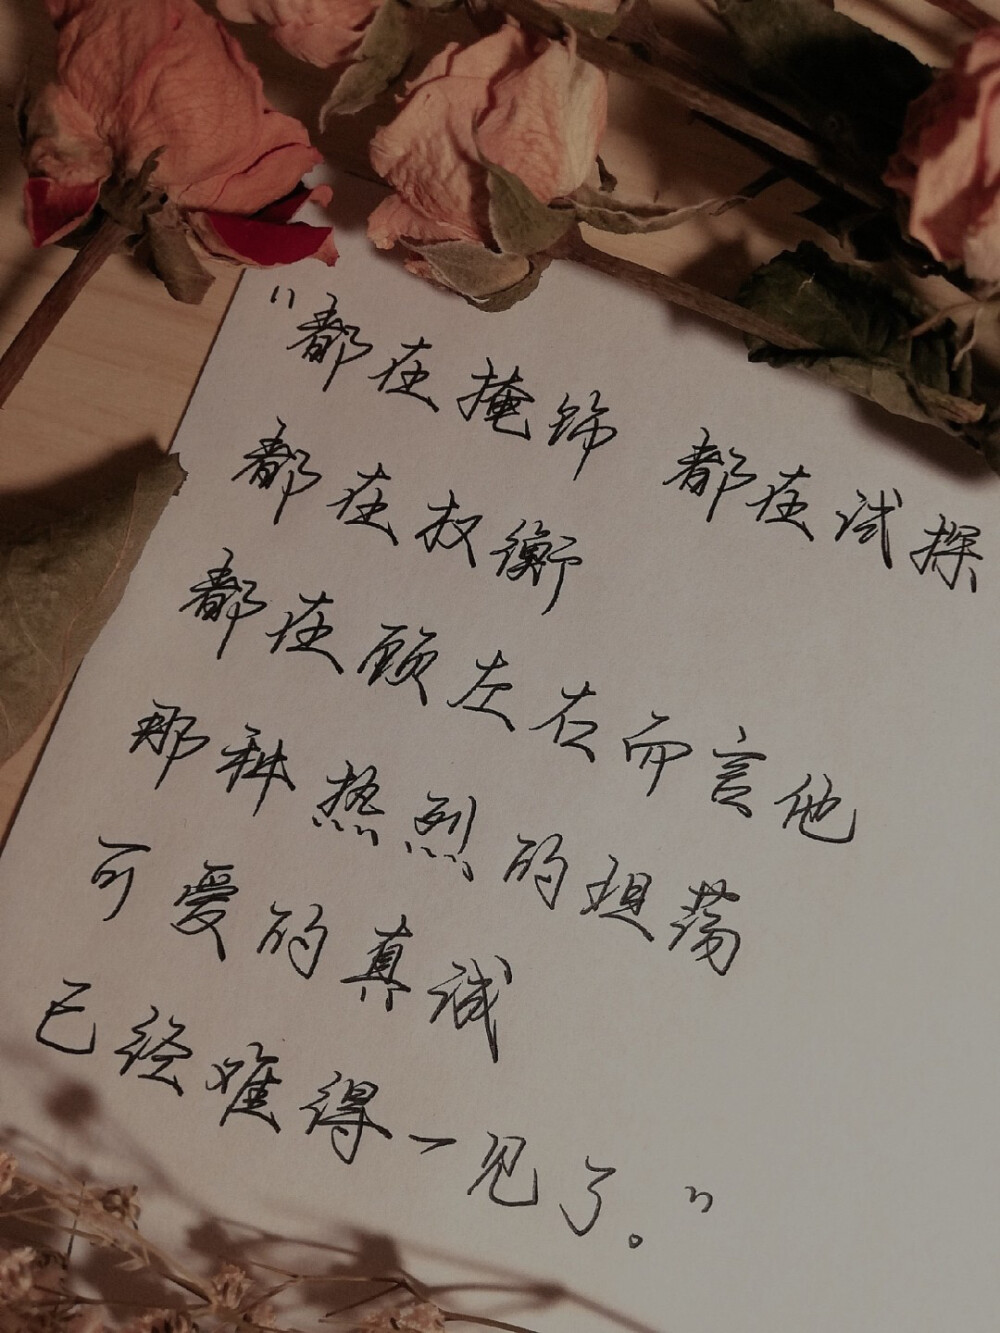 "都在掩饰 都在试探
都在权衡
都在顾左右而言他
那种热烈的坦荡
可爱的真诚
已经难得一见了。"